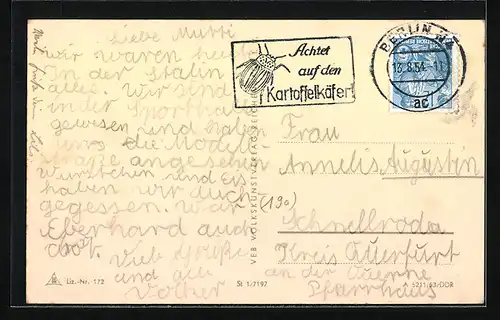 Liebe Mutti
wir waren heute
in der Stalin
allee. Wir sind
in der Sporthalle
gewesen und haben
uns die Modell
straße angesehen
Würstchen und Eis
haben wir auch
gegessen. War
Eberhard auch
dort. Viele Grüße
und alle
Volker
Achtet
auf den
Kartoffelkäfer!
BERLIN N4
13.8.54.-11
ac
Frau
Annelis Augustin
(19a)
Schnellroda
Kreis Querfurt
an der Querne
Pfarrhaus
VEB VOLKSKUNSTVERLAG REICHENBACH
Liz.-Nr. 172
St 1/7197
A 5211/53/DDR